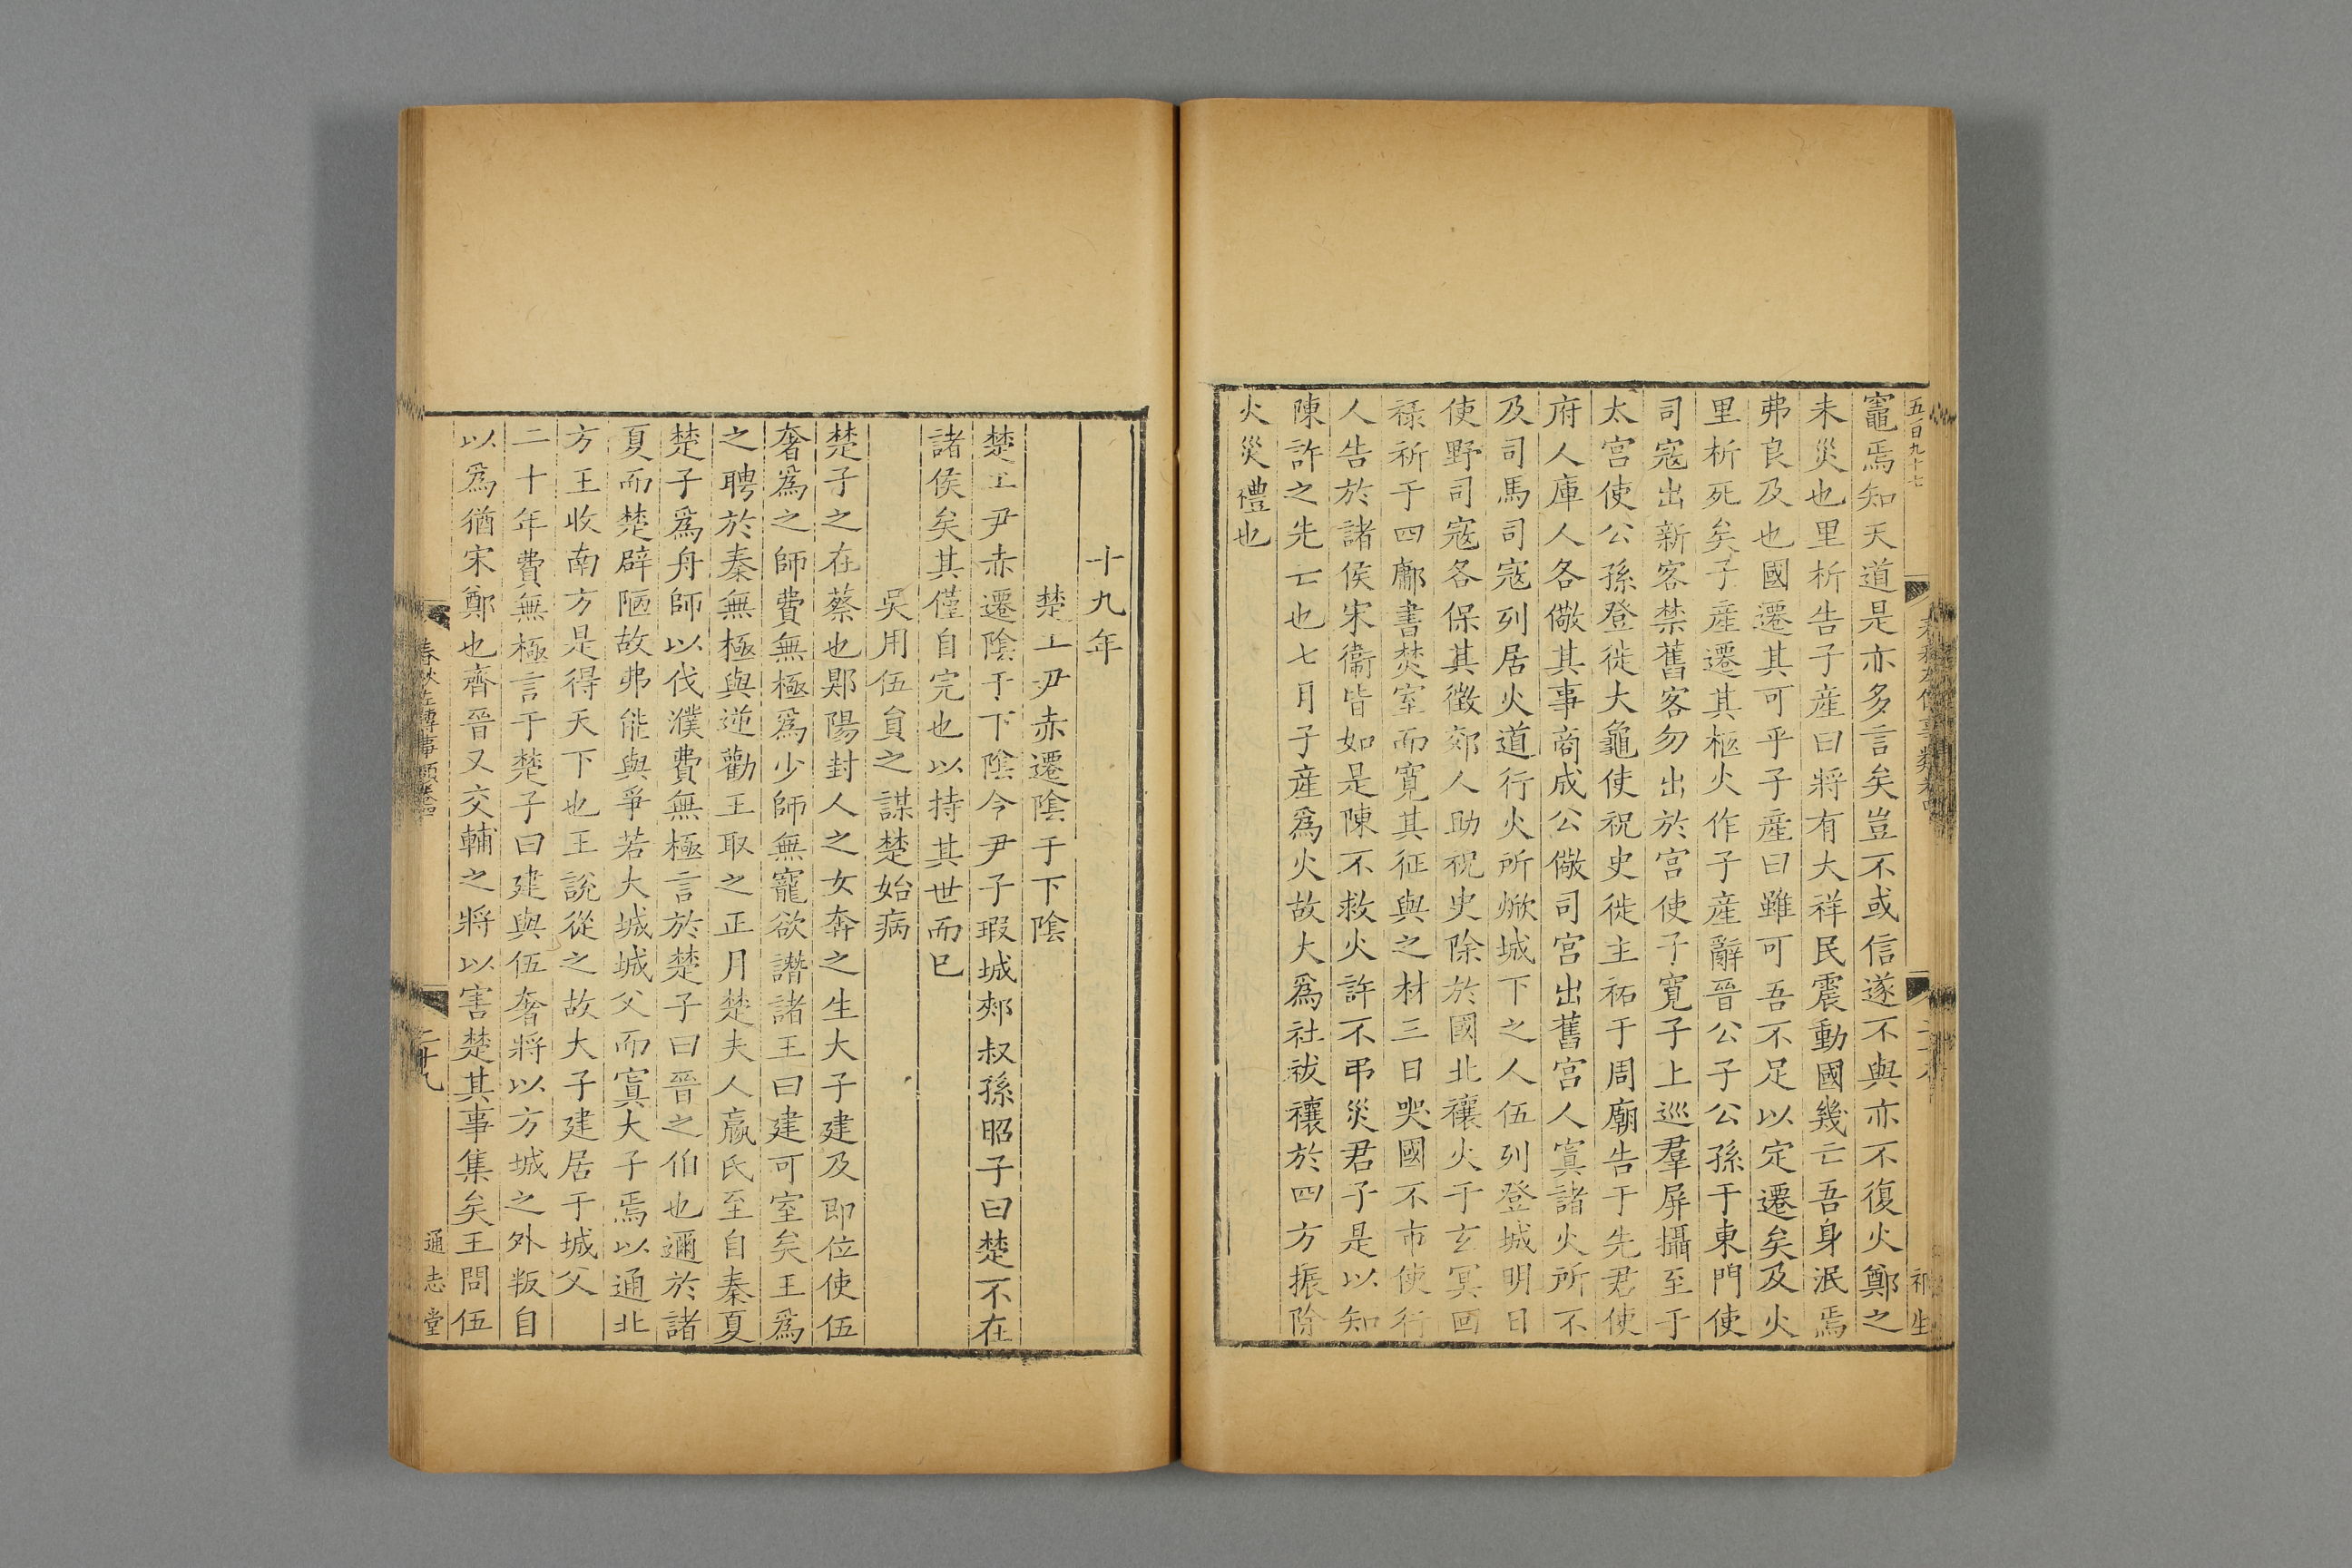 五百九十七
竈焉知天道是亦多言矣豈不或信遂不與亦不復火鄭之
未災也里析告子産曰將有大祥民震動國幾亡吾身泯焉
弗良及也國遷其可乎子産曰雖可吾不足以定遷矣及火
里析死矣子産遷其柩火作子産辭晉公子公孫于東門使
司寇出新客禁舊客勿出於宮使子寬子上巡羣屏攝至于
太宮使公孫登徙大龜使祝史徙主祏于周廟告于先君使
府人庫人各儆其事商成公儆司宮出舊宮人寘諸火所不
及司馬司寇列居火道行火所焮城下之人伍列登城明日
使野司寇各保其徵郊人助祝史除於國北禳火于玄冥回
祿祈于四鄘書焚室而寬其征與之材三日哭國不市使行
人告於諸侯宋衞皆如是陳不救火許不弔災君子是以知
陳許之先亡也七月子産爲火故大爲社祓禳於四方振除
火災禮也
十九年
楚工尹赤遷陰于下陰
楚工尹赤遷陰于下陰令尹子瑕城郟叔孫昭子曰楚不在
諸侯矣其僅自完也以持其世而已
吳用伍員之謀楚始病
楚子之在蔡也郹陽封人之女奔之生大子建及即位使伍
奢爲之師費無極爲少師無寵欲譖諸王曰建可室矣王爲
之聘於秦無極與逆勸王取之正月楚夫人嬴氏至自秦夏
楚子爲舟師以伐濮費無極言於楚子曰晉之伯也邇於諸
夏而楚辟陋故弗能與爭若大城城父而寘大子焉以通北
方王收南方是得天下也王說從之故大子建居于城父
二十年費無極言于楚子曰建與伍奢將以方城之外叛自
以爲猶宋鄭也齊晉又交輔之將以害楚其事集矣王問伍
春秋左傳事類卷四
二十九
通志堂